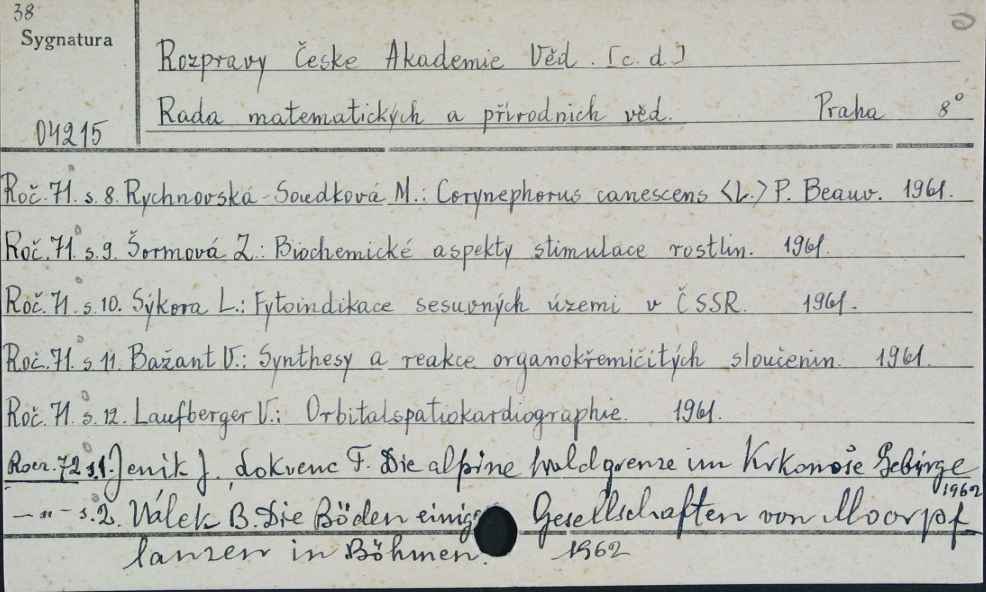 38
Sygnatura
04215
Rozpravy České Akademie Věd. [c. d.]
Rada matematických a přírodnich věd. Praha 8°
Roč. 71. s. 8. Rychnovská-Soudková M.: Corynephorus canescens <L.> P. Beauv. 1961.
Roč. 71. s. 9. Šormová Z.: Biochemické aspekty stimulace rostlin. 1961.
Roč. 71. s. 10. Sýkora L.: Fytoindikace sesuvných územi v ČSSR. 1961.
Roč. 71. s. 11. Bažant V.: Synthesy a reakce organokřemičitých sloučenin. 1961.
Roč. 71. s. 12. Laufberger V.: Orbitalspatiokardiographie. 1961.
Rocz. 72 s. 1. Jenik J., Lokvenc F. Die alpine Waldgrenze im Krkonoše Gebirge 1962
— „ — s. 2. Válek B. Die Böden Gesellschaften von Moorpf
lanzen in Böhmen. 1962